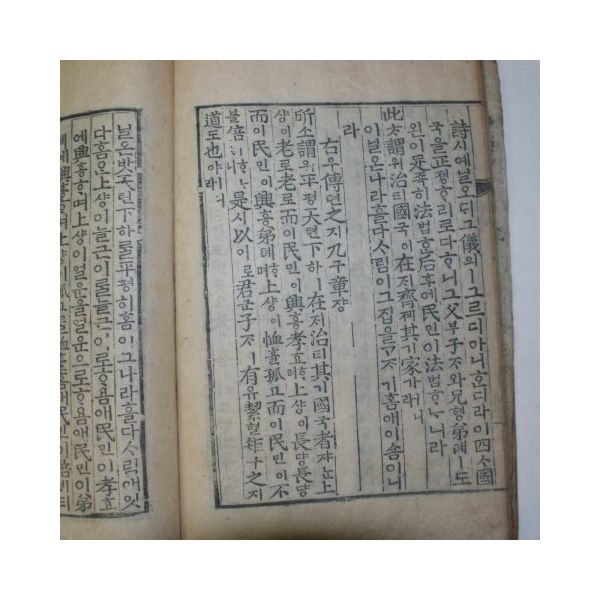 詩시예닐오ᄃᆡ그儀의ㅣ그르디아니ᄒᆞᆫ디라이四ᄉᆞ國
국을正졍ᄒᆞ리로다ᄒᆞ니그父부子ᄌᆞ와兄형弟뎨ㅣ도
왼이足죡히法법ᄒᆞᆫ后후에民민이法법ᄒᆞᄂᆞ니라
此ᄎᆞ謂위治티國국이在ᄌᆡ齊졔其기家가ㅣ니라
이닐온나라흘다ᄉᆞ림이그집을ᄀᆞᄌᆞ기홈애이숌이니
라
右우傳뎐之지九구章쟝
所소謂위平평天텬下하ㅣ在ᄌᆡ治티其기國국者쟈ᄂᆞᆫ上
샹이老로老로而이民민이興흥孝효ᄒᆞ며上샹이長댱長댱
而이民민이興흥弟뎨ᄒᆞ며上샹이恤휼孤고而이民민이不
블倍ᄇᆡᄒᆞᄂᆞ니是시以이로君군子ᄌᆞㅣ有유絜혈矩구之지
道도也야ㅣ니라
닐온밧天텬下하ᄅᆞᆯ平평히홈이그나라흘다ᄉᆞ림애잇
다홈은上샹이늘근이ᄅᆞᆯ늘근이로ᄒᆞ욤애民민이孝효
에興흥ᄒᆞ며上샹이얼운을얼운으로ᄒᆞ욤애民민이弟
뎨예興흥ᄒᆞ며上샹이孤고ᄅᆞᆯ恤휼홈애民민이倍ᄇᆡ티